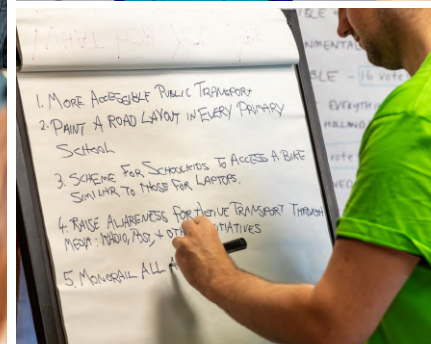 1. MORE ACCESSIBLE PUBLIC TRANSPORT
2. PAINT A ROAD LAYOUT IN EVERY PRIMARY
SCHOOL
3. SCHEME FOR SCHOOLKIDS TO ACCESS A BIKE
SIMILAR TO THOSE FOR LAPTOPS.
4. RAISE AWARENESS FOR ACTIVE TRANSPORT THROUGH
MEDIA: RADIO, POST, + OTHER INITIATIVES
5. MONORAIL ALL A
BLE
NMENTAL
BLE - 16 vote
EVERYTHIN
HOLLAND
vote